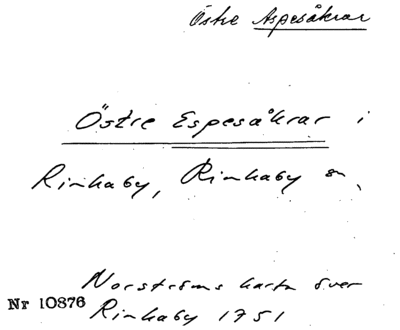 Östre Aspesåkrar
Östre Espesåkrar i
Rinkaby, Rinkaby sn,
Norströms karta över
Nr 10876 Rinkaby 1751